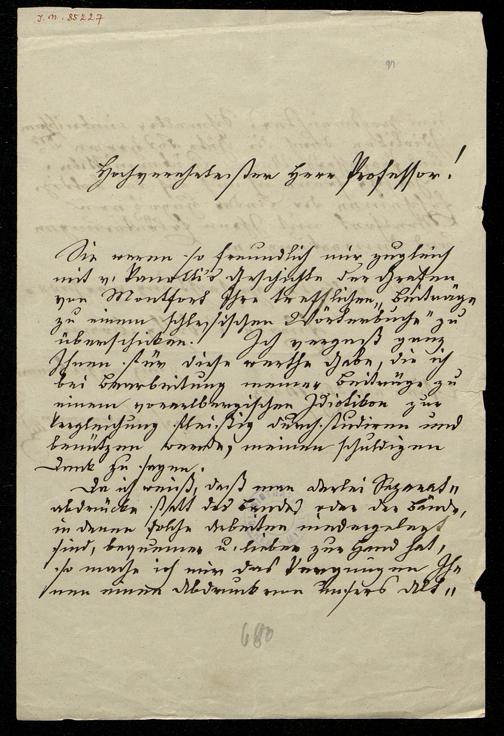 J. N. 85227
Hochverehrtester Herr Professor!
Sie waren so freundlich mir zugleich
mit v. Vanotti's Geschichte der Grafen
von Montfort Ihre trefflichen „Beiträge
zu einem schlesischen Wörterbuche" zu
überschicken. Ich vergaß ganz
Ihnen für diese werthe Gabe, die ich
bei Bearbeitung meiner Beiträge zu
einem vorarlbergischen Idiotikon zur
Vergleichung fleißig durchstudiren und
benützen werde, meinen schuldigen
Dank zu sagen.
Da ich weiß, daß man derlei Separat-
abdrücke statt des Bandes oder der Bände,
in denen solche Arbeiten niedergelegt
sind, bequemer u. lieber zur Hand hat,
so mache ich mir das Vergnügen Ih-
nen einen Abdruck von
680